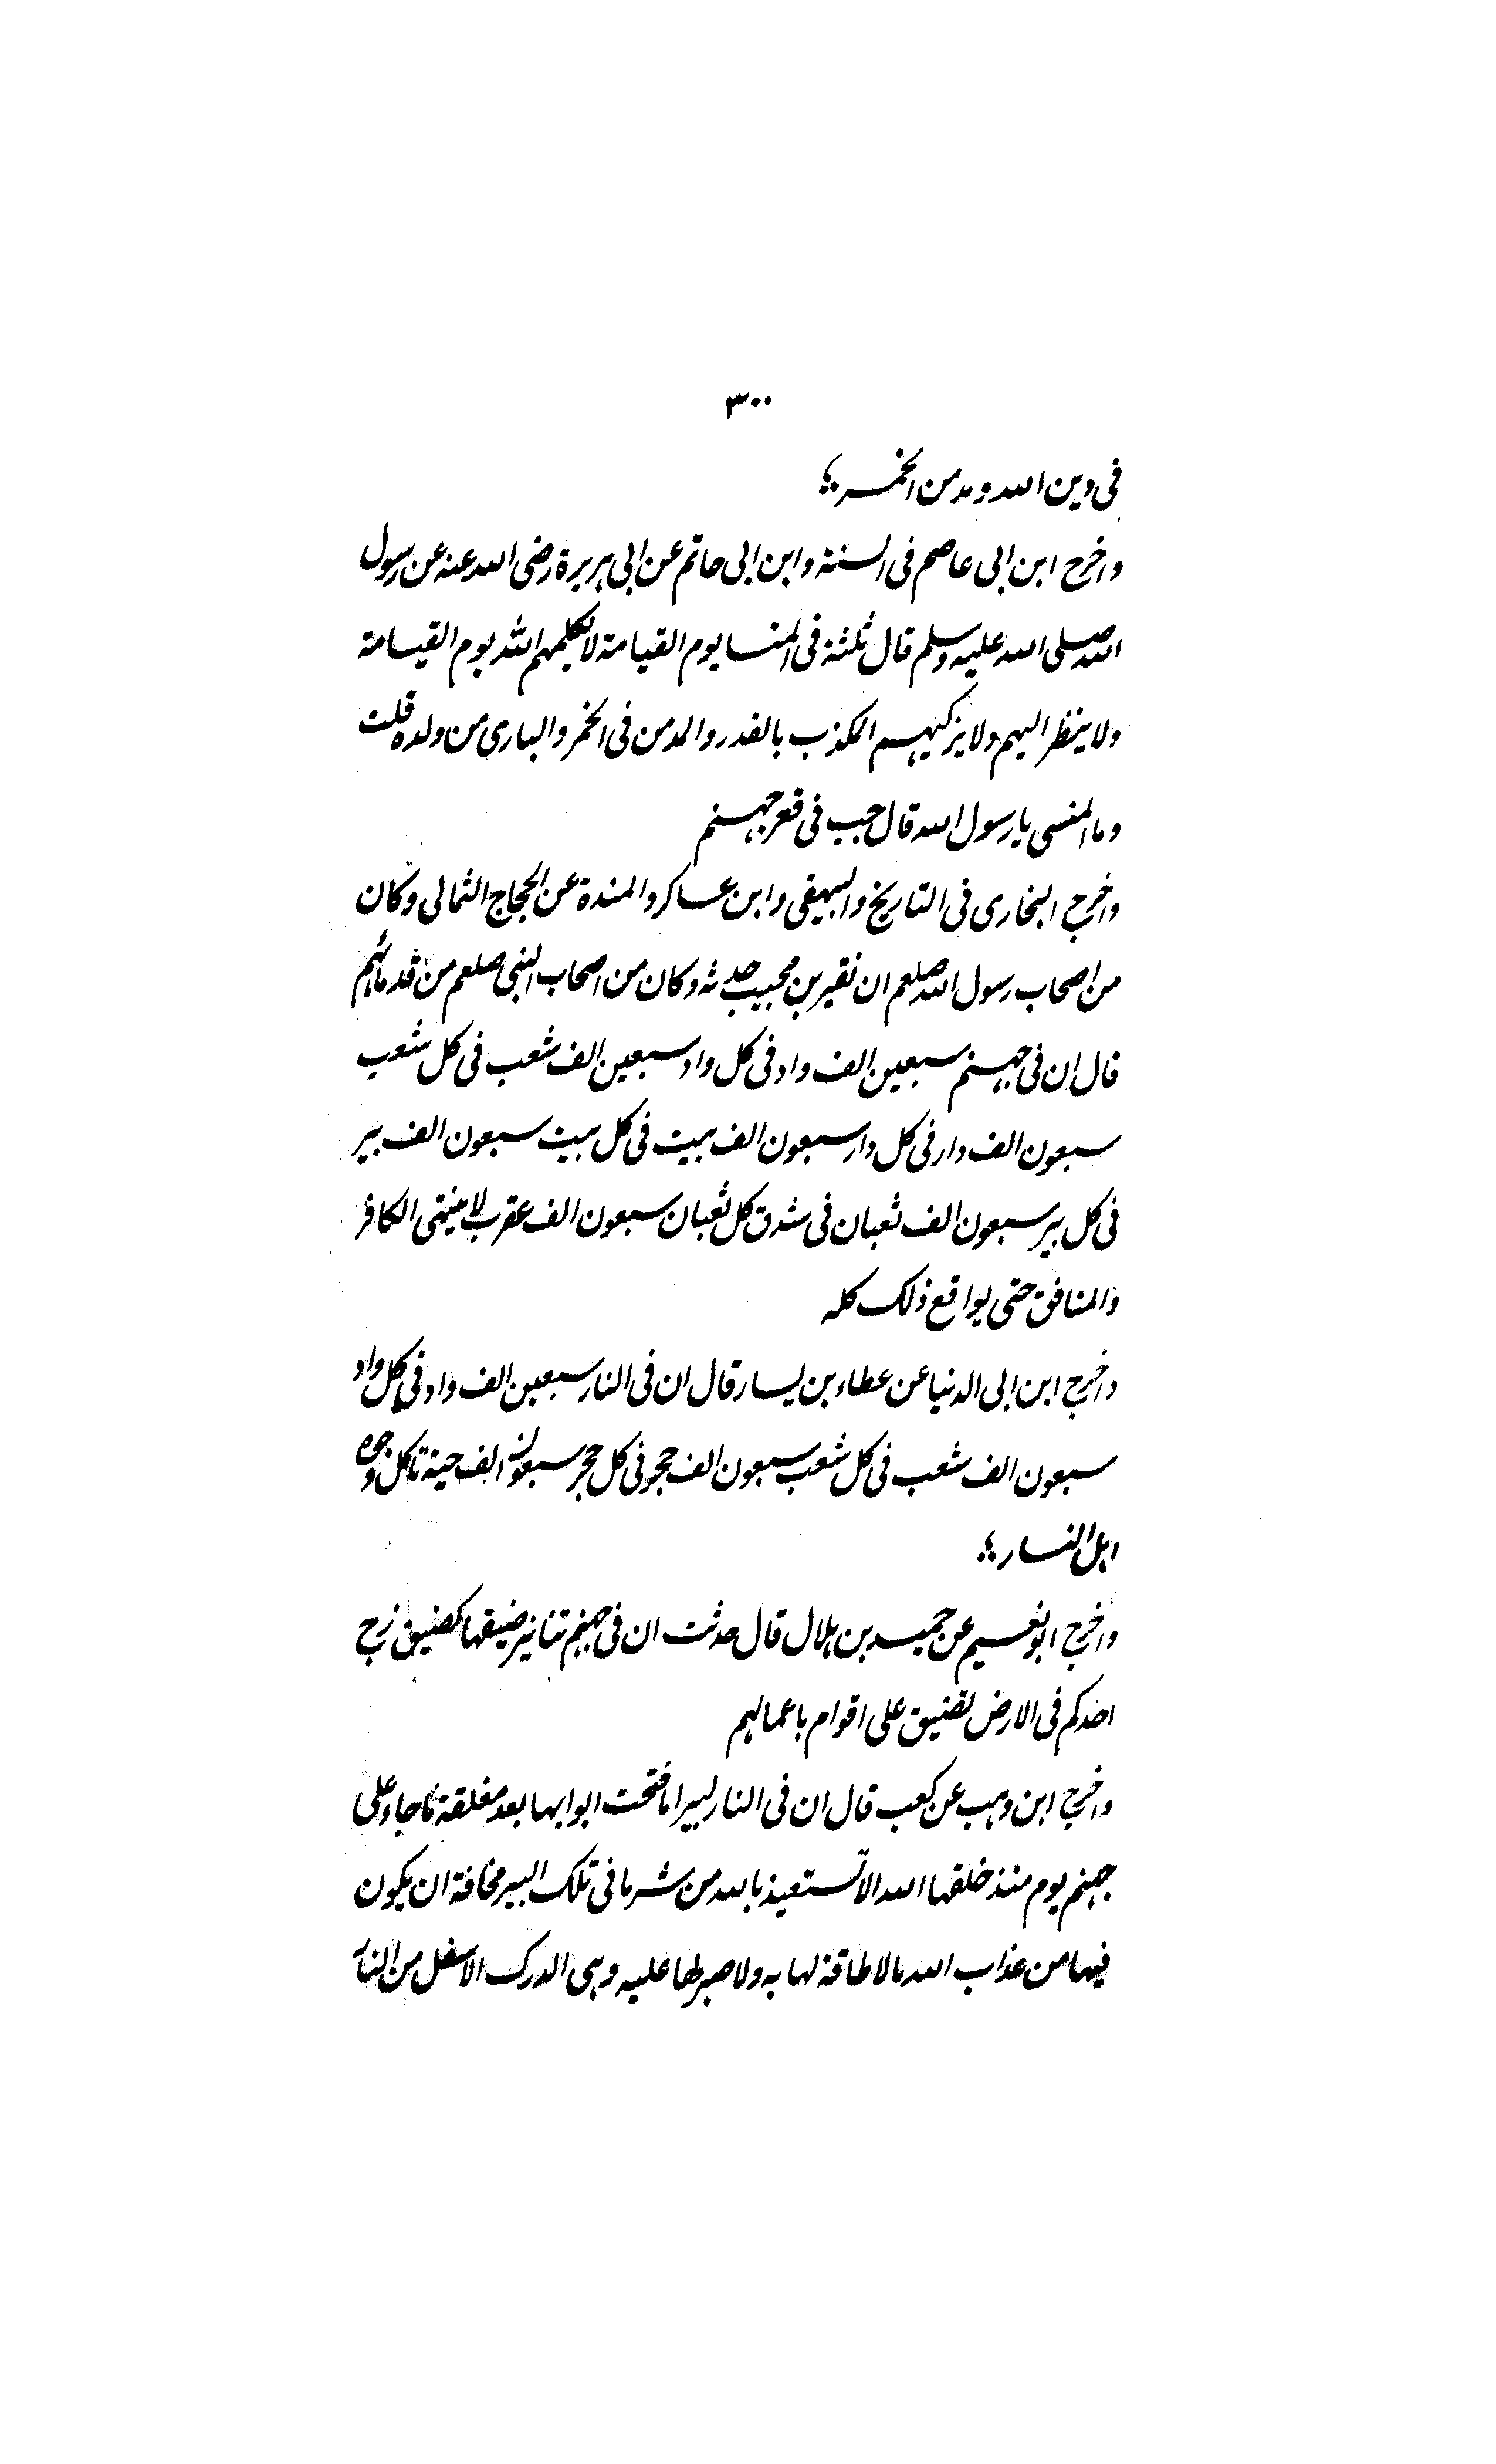 ٣٠٠
فی دین اللہ ومدمن الخمر؛
واخرج ابن ابی عاصم فی السنۃ وابن ابی حاتم عن ابی ہریرۃ رضی اللہ عنہ عن رسول
اللہ صلی اللہ علیہ وسلم قال ثلثۃ فی المنسا یوم القیامۃ لا یکلمہم اللہ یوم القیامۃ
ولا ینظر الیہم ولا یزکیہم المکذب بالقدر والمدمن فی الخمر والباری من ولدہ قلت
وما المنسی یا رسول اللہ قال جب فی قعر جہنم
واخرج البخاری فی التاریخ والبیہقی وابن عساکر والمندۃ عن الحجاج الثمالی وکان
من اصحاب رسول اللہ صلعم ان نقیر بن مجیب حدثہ وکان من اصحاب النبی صلعم من قدمائہم
قال ان فی جہنم سبعین الف واد فی کل واد سبعین الف شعب فی کل شعب
سبعون الف دار فی کل دار سبعون الف بیت فی کل بیت سبعون الف بیر
فی کل بیر سبعون الف ثعبان فی شدق کل ثعبان سبعون الف عقرب لا ینتہی الکافر
والمنافق حتی یواقع ذلک کلہ
واخرج ابن ابی الدنیا عن عطاء بن یسار قال ان فی النار سبعین الف واد فی کل واد
سبعون الف شعب فی کل شعب سبعون الف جحر فی کل جحر سبعون الف حیۃ تاکل وجوہ
اہل النار؛
واخرج ابو نعیم عن حمید بن ہلال قال حدثت ان فی جہنم تنانیر ضیقہا کضیق زج
احدکم فی الارض تضیق علی اقوام باعمالہم
واخرج ابن وہب عن کعب قال ان فی النار لبیرا ما فتحت ابوابہا بعد مغلقۃ ما جاء علی
جہنم یوم منذ خلقہا اللہ الا تستعیذ باللہ من شر ما فی تلک البیر مخافۃ ان یکون
فیہا من عذاب اللہ مالا طاقۃ لہا بہ ولا صبر لہا علیہ وہی الدرک الاسفل من النار